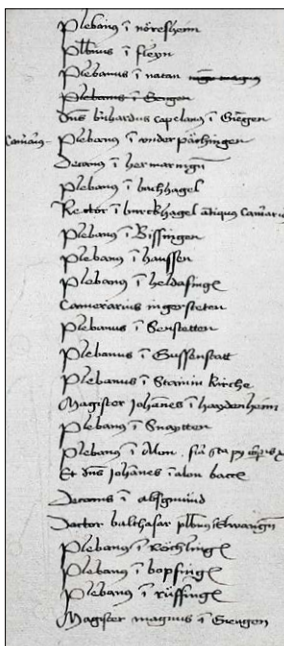 Plebanus ī nöresheim
Plbnus ī fleyn
Plebanus ī natan
Plebanus ī Gengen
Dns bnhardus capelanus ī Giengen
Plebanus ī onderpächingen
Decanus ī hermaringn
Plebanus ī bachhagel
Rector ī burckhagel antiquus
Plebanus ī Bissingen
Plebanus ī haussen
Plebanus ī heldafing
Camerarius ingersteten
Plebanus ī Senstetten
Plebanus ī Gussenstatt
Plebanus ī Stainin kirche
Magister Johānes ī haydenheim
Plebanus ī Snaytten
Plebanus ī Alon
Et dns Johānes ī alon bacc
Decanus ī absgmünd
Doctor balthasar plbnus
Plebanus ī Röchling
Plebanus ī bopfing
Plebanus ī rüffing
Magister magnus ī Giengen